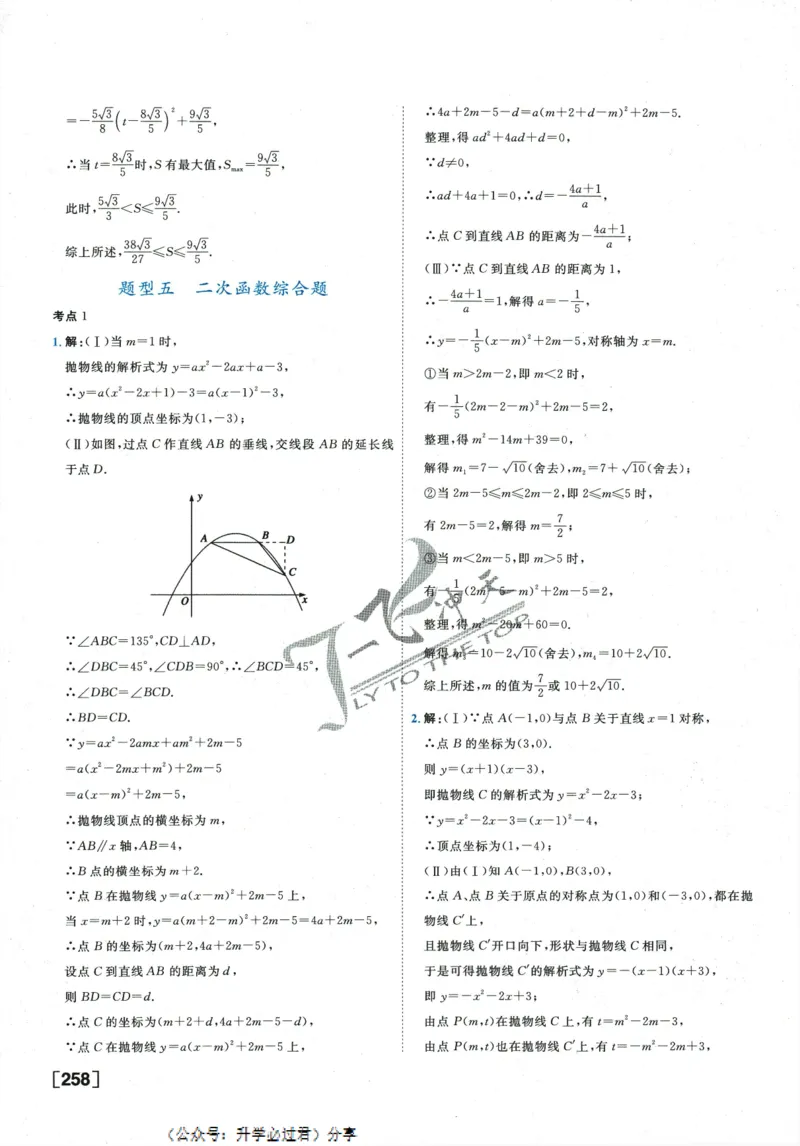 =-5√3/8(t-8√3/5)²+9√3/5,
∴当t=8√3/5时,S有最大值,Smax=9√3/5,
此时,5√3/3<S≤9√3/5.
综上所述,38√3/27≤S≤9√3/5.
题型五 二次函数综合题
考点1
1.解:(Ⅰ)当m=1时,
抛物线的解析式为y=ax²-2ax+a-3,
∴y=a(x²-2x+1)-3=a(x-1)²-3,
∴抛物线的顶点坐标为(1,-3);
(Ⅱ)如图,过点C作直线AB的垂线,交线段AB的延长线
于点D.
y
A B D
C
O x
∵∠ABC=135°,CD⊥AD,
∴∠DBC=45°,∠CDB=90°,∴∠BCD=45°,
∴∠DBC=∠BCD.
∴BD=CD.
∵y=ax²-2amx+am²+2m-5
=a(x²-2mx+m²)+2m-5
=a(x-m)²+2m-5,
∴抛物线顶点的横坐标为m,
∵AB∥x轴,AB=4,
∴B点的横坐标为m+2.
∵点B在抛物线y=a(x-m)²+2m-5上,
当x=m+2时,y=a(m+2-m)²+2m-5=4a+2m-5,
∴点B的坐标为(m+2,4a+2m-5),
设点C到直线AB的距离为d,
则BD=CD=d.
∴点C的坐标为(m+2+d,4a+2m-5-d),
∵点C在抛物线y=a(x-m)²+2m-5上,
∴4a+2m-5-d=a(m+2+d-m)²+2m-5.
整理,得ad²+4ad+d=0,
∵d≠0,
∴ad+4a+1=0,∴d=-4a+1/a,
∴点C到直线AB的距离为-4a+1/a;
(Ⅲ)∵点C到直线AB的距离为1,
∴-4a+1/a=1,解得a=-1/5,
∴y=-1/5(x-m)²+2m-5,对称轴为x=m.
①当m>2m-2,即m<2时,
有-1/5(2m-2-m)²+2m-5=2,
整理,得m²-14m+39=0,
解得m₁=7-√10(舍去),m₂=7+√10(舍去);
②当2m-5≤m≤2m-2,即2≤m≤5时,
有2m-5=2,解得m=7/2;
③当m<2m-5,即m>5时,
有-1/5(2m-5-m)²+2m-5=2,
整理,得m²-20m+60=0.
解得m₃=10-2√10(舍去),m₄=10+2√10.
综上所述,m的值为7/2或10+2√10.
2.解:(Ⅰ)∵点A(-1,0)与点B关于直线x=1对称,
∴点B的坐标为(3,0).
则y=(x+1)(x-3),
即抛物线C的解析式为y=x²-2x-3;
∵y=x²-2x-3=(x-1)²-4,
∴顶点坐标为(1,-4);
(Ⅱ)由(Ⅰ)知A(-1,0),B(3,0),
∴点A、点B关于原点的对称点为(1,0)和(-3,0),都在抛
物线C′上,
且抛物线C′开口向下,形状与抛物线C相同,
于是可得抛物线C′的解析式为y=-(x-1)(x+3),
即y=-x²-2x+3;
由点P(m,t)在抛物线C上,有t=m²-2m-3,
由点P(m,t)也在抛物线C′上,有t=-m²-2m+3,
一飞冲天
FLY TO THE TOP
[258]
(公众号:升学必过君)分享